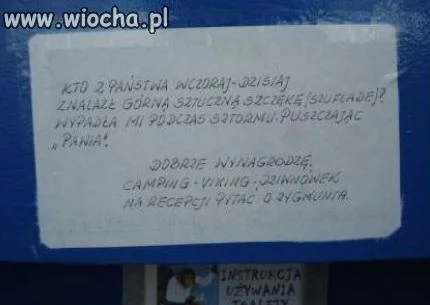 www.wiocha.pl
KTO Z PAŃSTWA WCZORAJ-DZISIAJ
ZNALAZŁ GÓRNĄ SZTUCZNĄ SZCZĘKĘ (SZUFLADĘ)?
WYPADŁA MI PODCZAS SZTORMU PUSZCZAJĄC
„PAWIA".
DOBRZE WYNAGRODZĘ,
CAMPING - VIKING - DZIWNÓWEK
NA RECEPCJI PYTAĆ O ZYGMUNTA.
INSTRUKCJA
UŻYWANIA
TOALETY